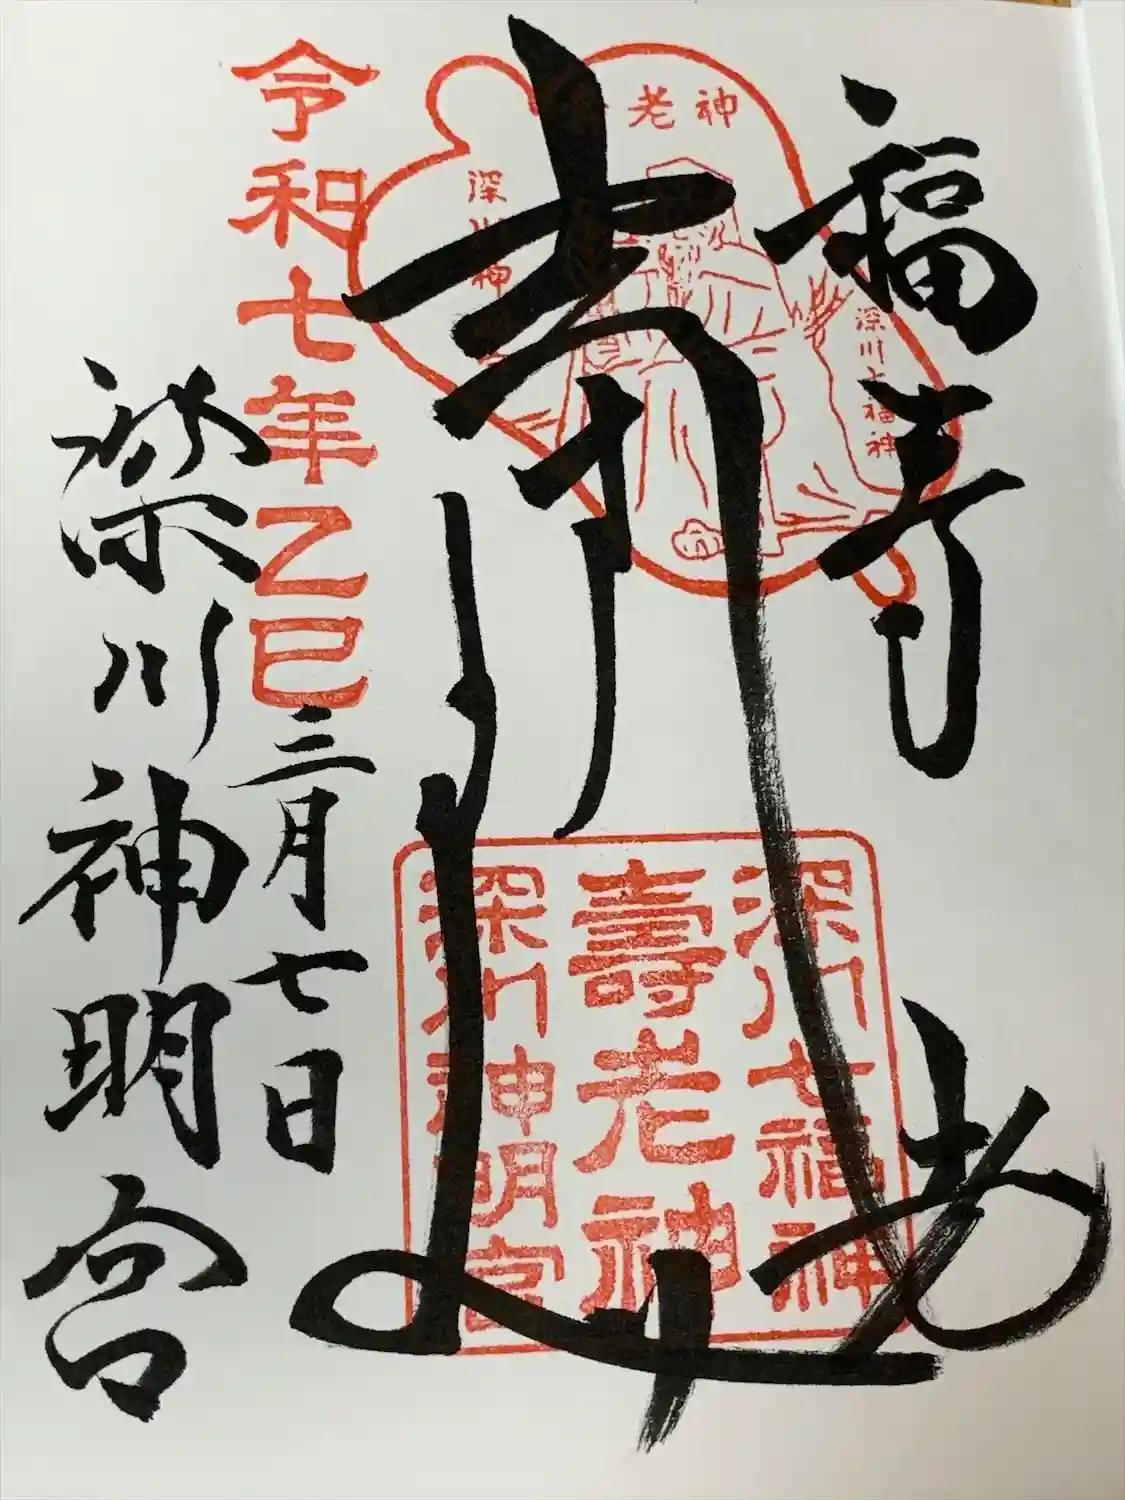 福寿
老神
深川七福神
深川神
深川七福神
壽老神
深川神明宮
令和七年乙巳三月七日
深川神明宮